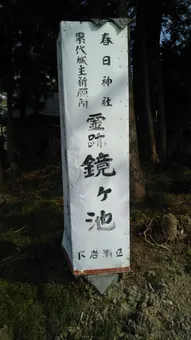 春日神社
累代城主祈願所
霊跡 鏡ヶ池
下岩瀬区